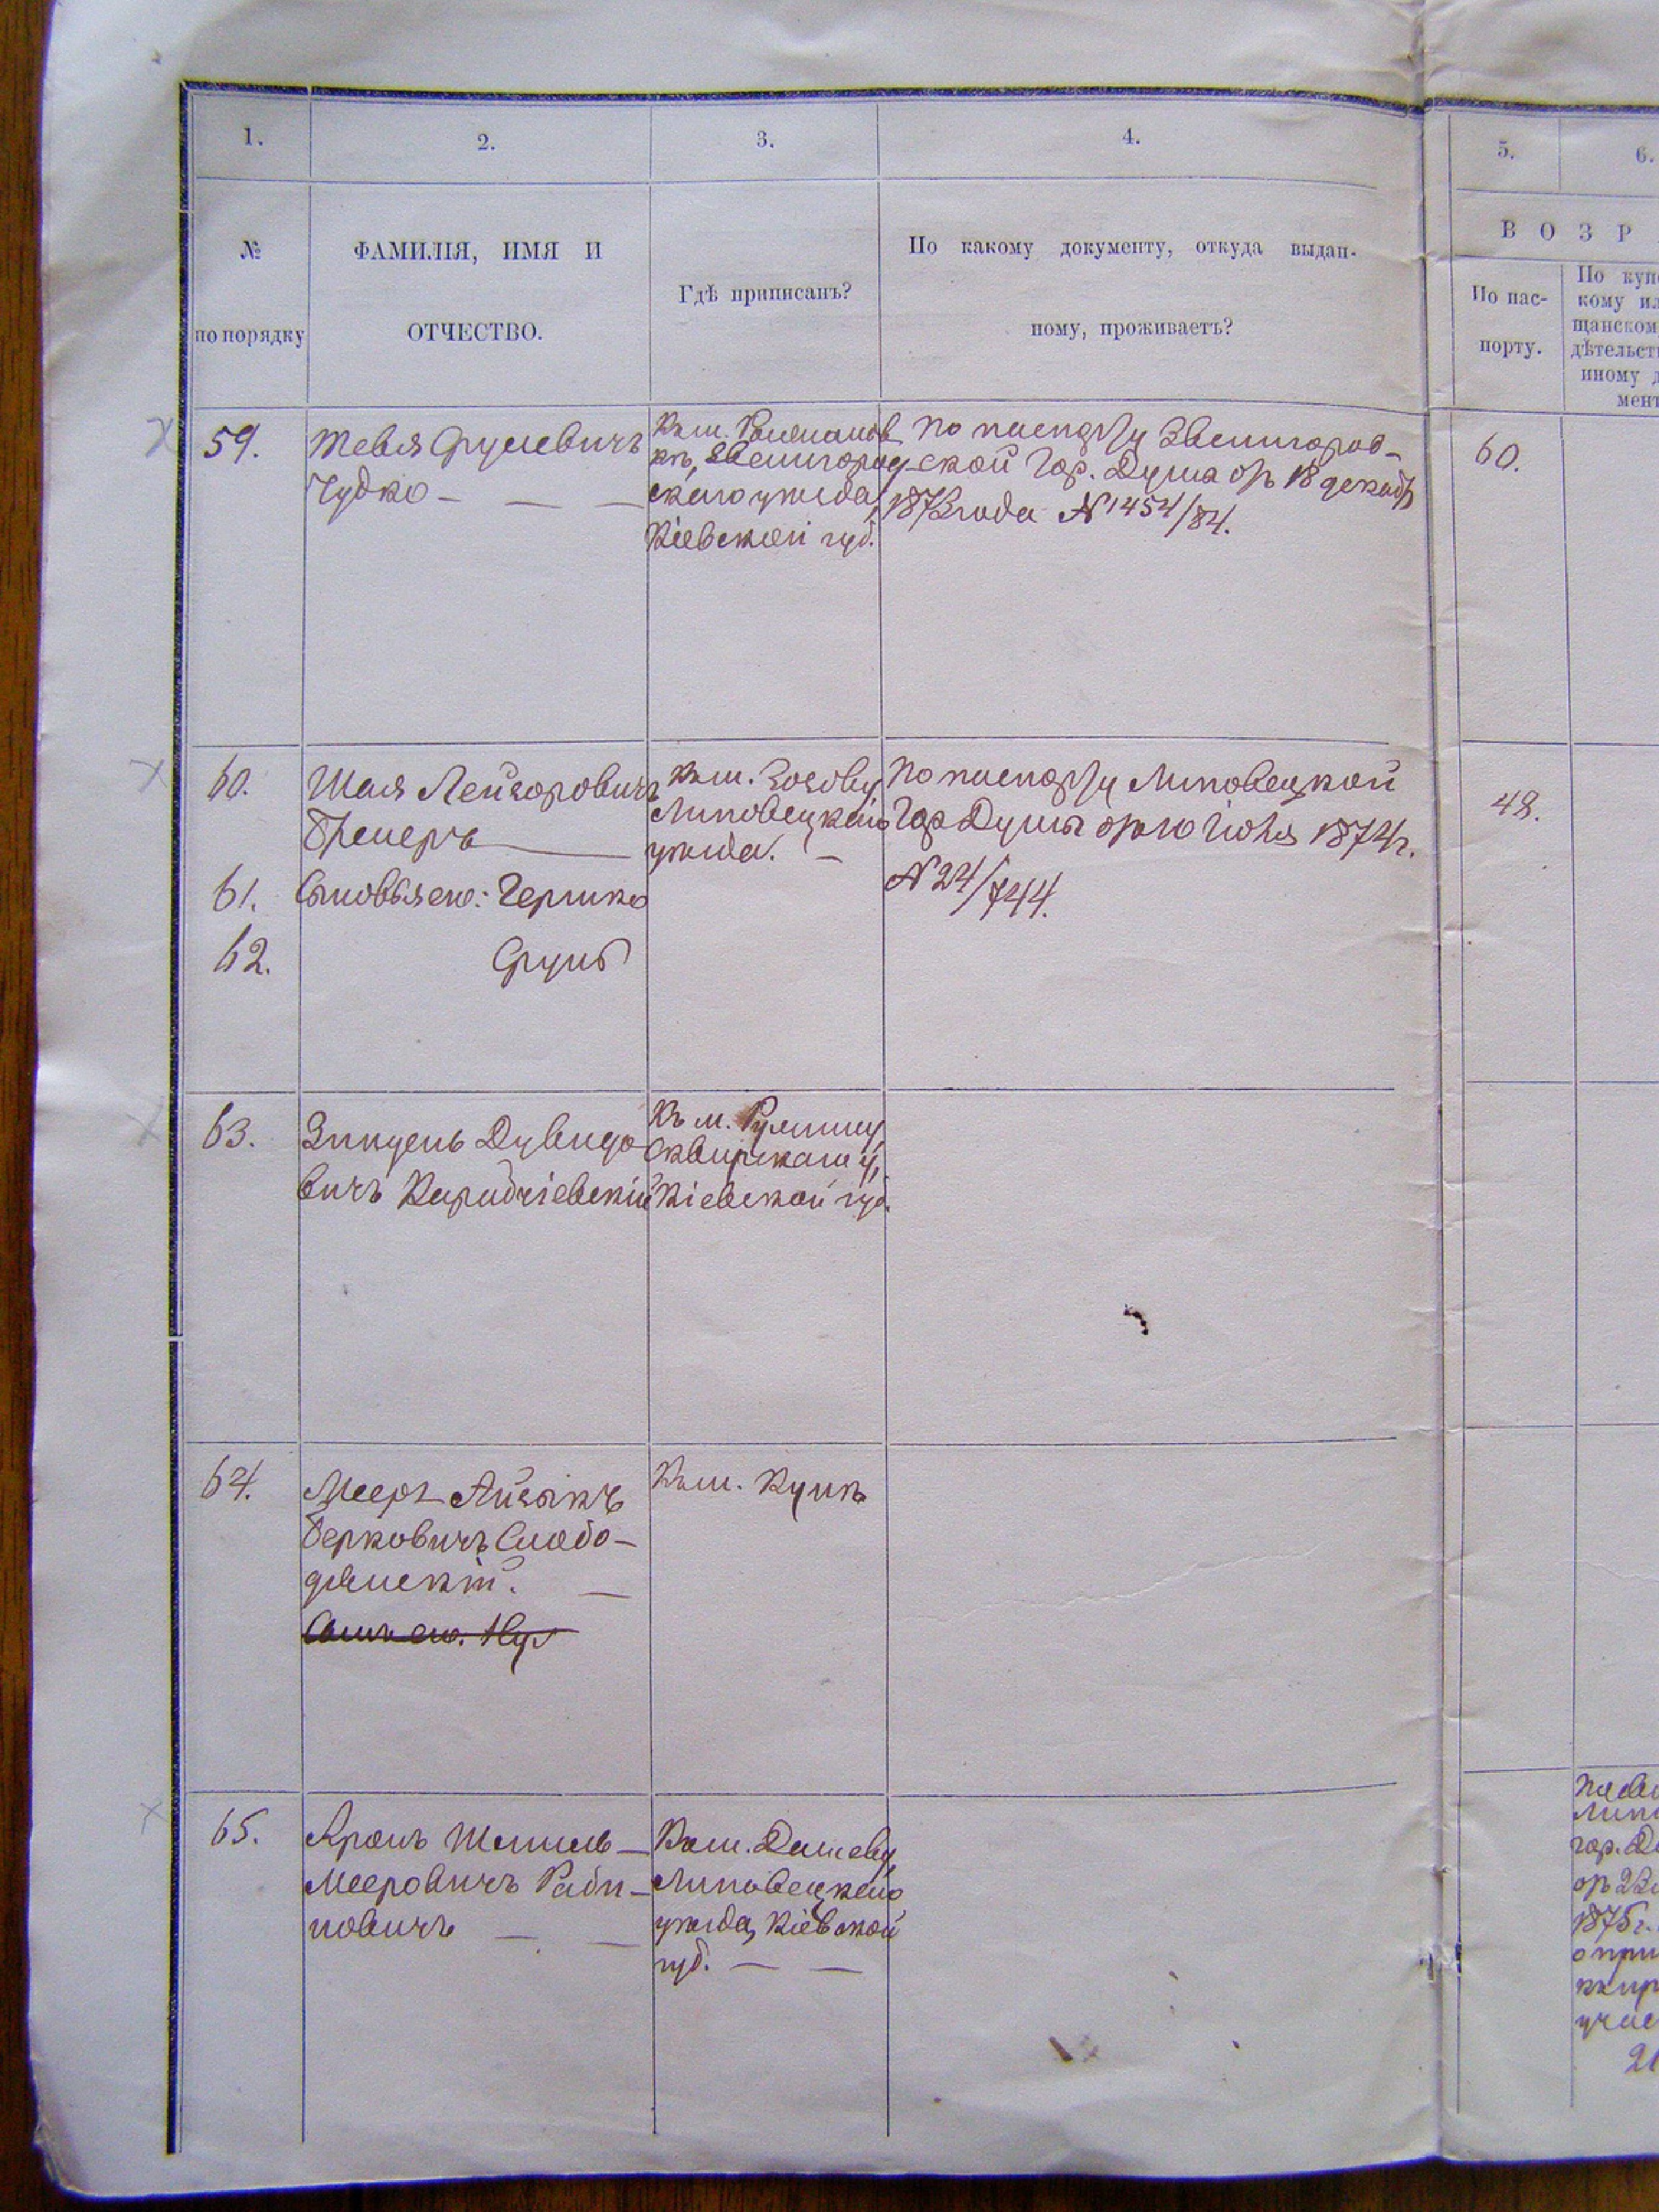 1.
2.
3.
4.
5.
6.
№
по порядку
ФАМИЛІЯ, ИМЯ И
ОТЧЕСТВО.
Гдѣ приписанъ?
По какому документу, откуда выдан-
ному, проживаетъ?
ВОЗР
По пас-
порту.
По куп
кому ил
щанском
дѣтельст
иному д
мент
59.
Тевья Срулевичъ
Чудко
Къ м.
Звенигород-
скаго уѣзда,
Кіевской губ.
По паспорту Звенигород-
ской Гор. Думы отъ 18 декабр
1873 года №1454/84.
60.
60.
Шая Лейзоровичъ
Тренеръ
Къ м. Зозову
Липовецкаго
уѣзда.
По паспорту Липовецкой
Гор Думы отъ 10 Іюля 1874 г.
№ 24/744.
48.
61.
Сыновья его: Гершко
62.
Сруль
63.
Дувидо
вичъ
Къ м. Ружину
Сквирскаго у,
Кіевской губ.
64.
Мееръ Айзыкъ
Берковичъ Слобо-
дянскій.
Сынъ его.
Къ м.
65.
Аронъ Шмиль-
Мееровичъ Раби-
новичъ
Къ м. Дашеву
Липовецкаго
уѣзда, Кіевской
губ.
гор. Д
1875 г.